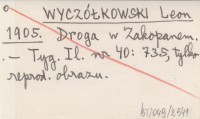 WYCZÓŁKOWSKI Leon
1905. Droga w Zakopanem.
. — Tyg. Il. nr 40: 735, tylko
reprod. obrazu.